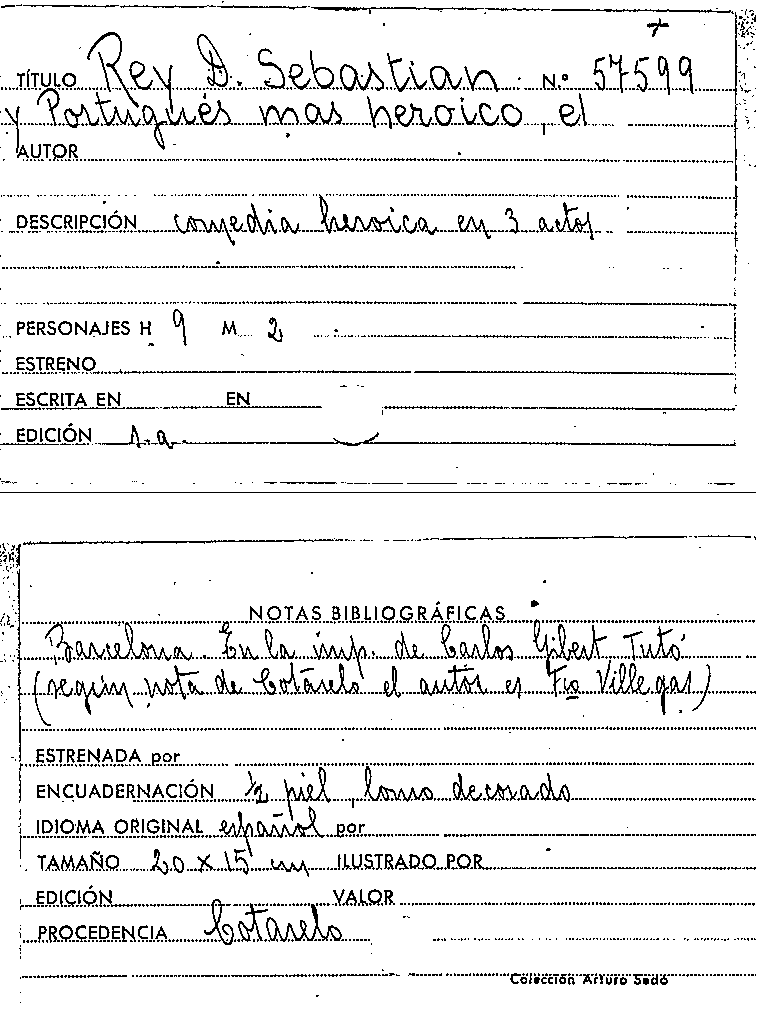 TÍTULO Rey D. Sebastian N.° 57599
y Portugués mas heroico, el
AUTOR
DESCRIPCIÓN comedia heroica en 3 actos
PERSONAJES H 9 M 2
ESTRENO
ESCRITA EN EN
EDICIÓN s.a.
NOTAS BIBLIOGRÁFICAS
Barcelona. En la imp. de Carlos Gibert Tutó
(según nota de Cotarelo el autor es Fco Villegas)
ESTRENADA por
ENCUADERNACIÓN 1/2 piel, lomo decorado
IDIOMA ORIGINAL español por
TAMAÑO 20 x 15 cm ILUSTRADO POR
EDICIÓN VALOR
PROCEDENCIA Cotarelo
Colección Arturo Sedó